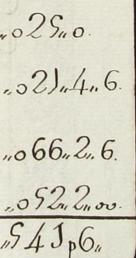 „025„0.
„021„4„6.
„066„2„6.
„052„2„00„
„541p6„